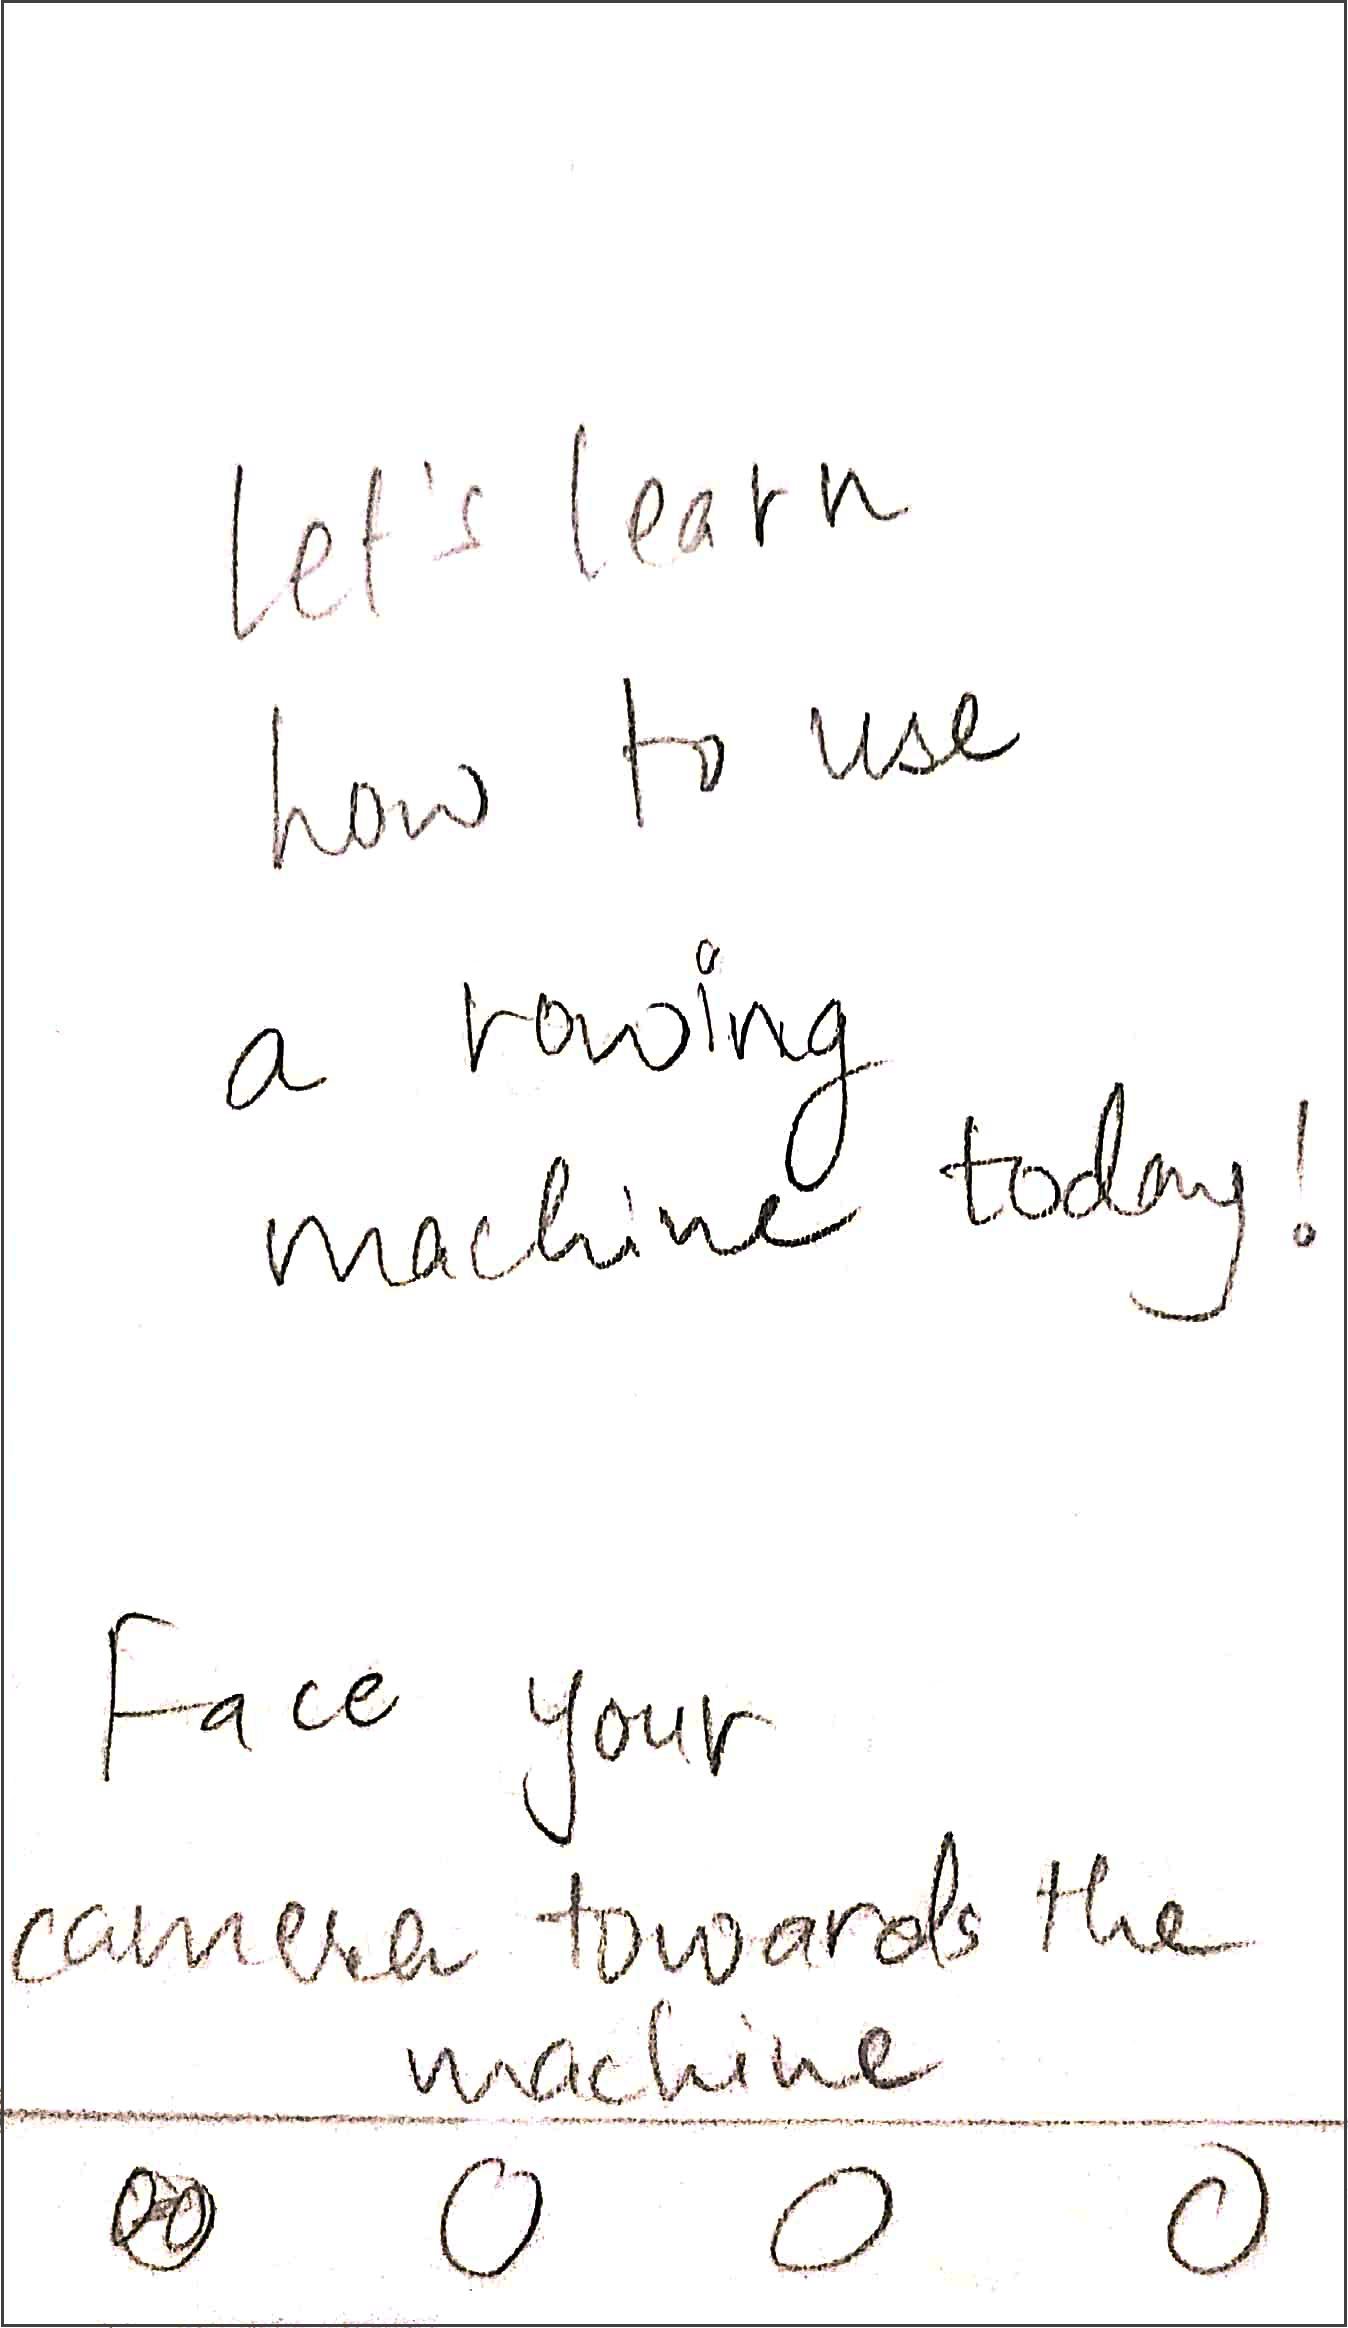 Let's learn
how to use
a rowing
machine today!
Face your
camera towards the
machine